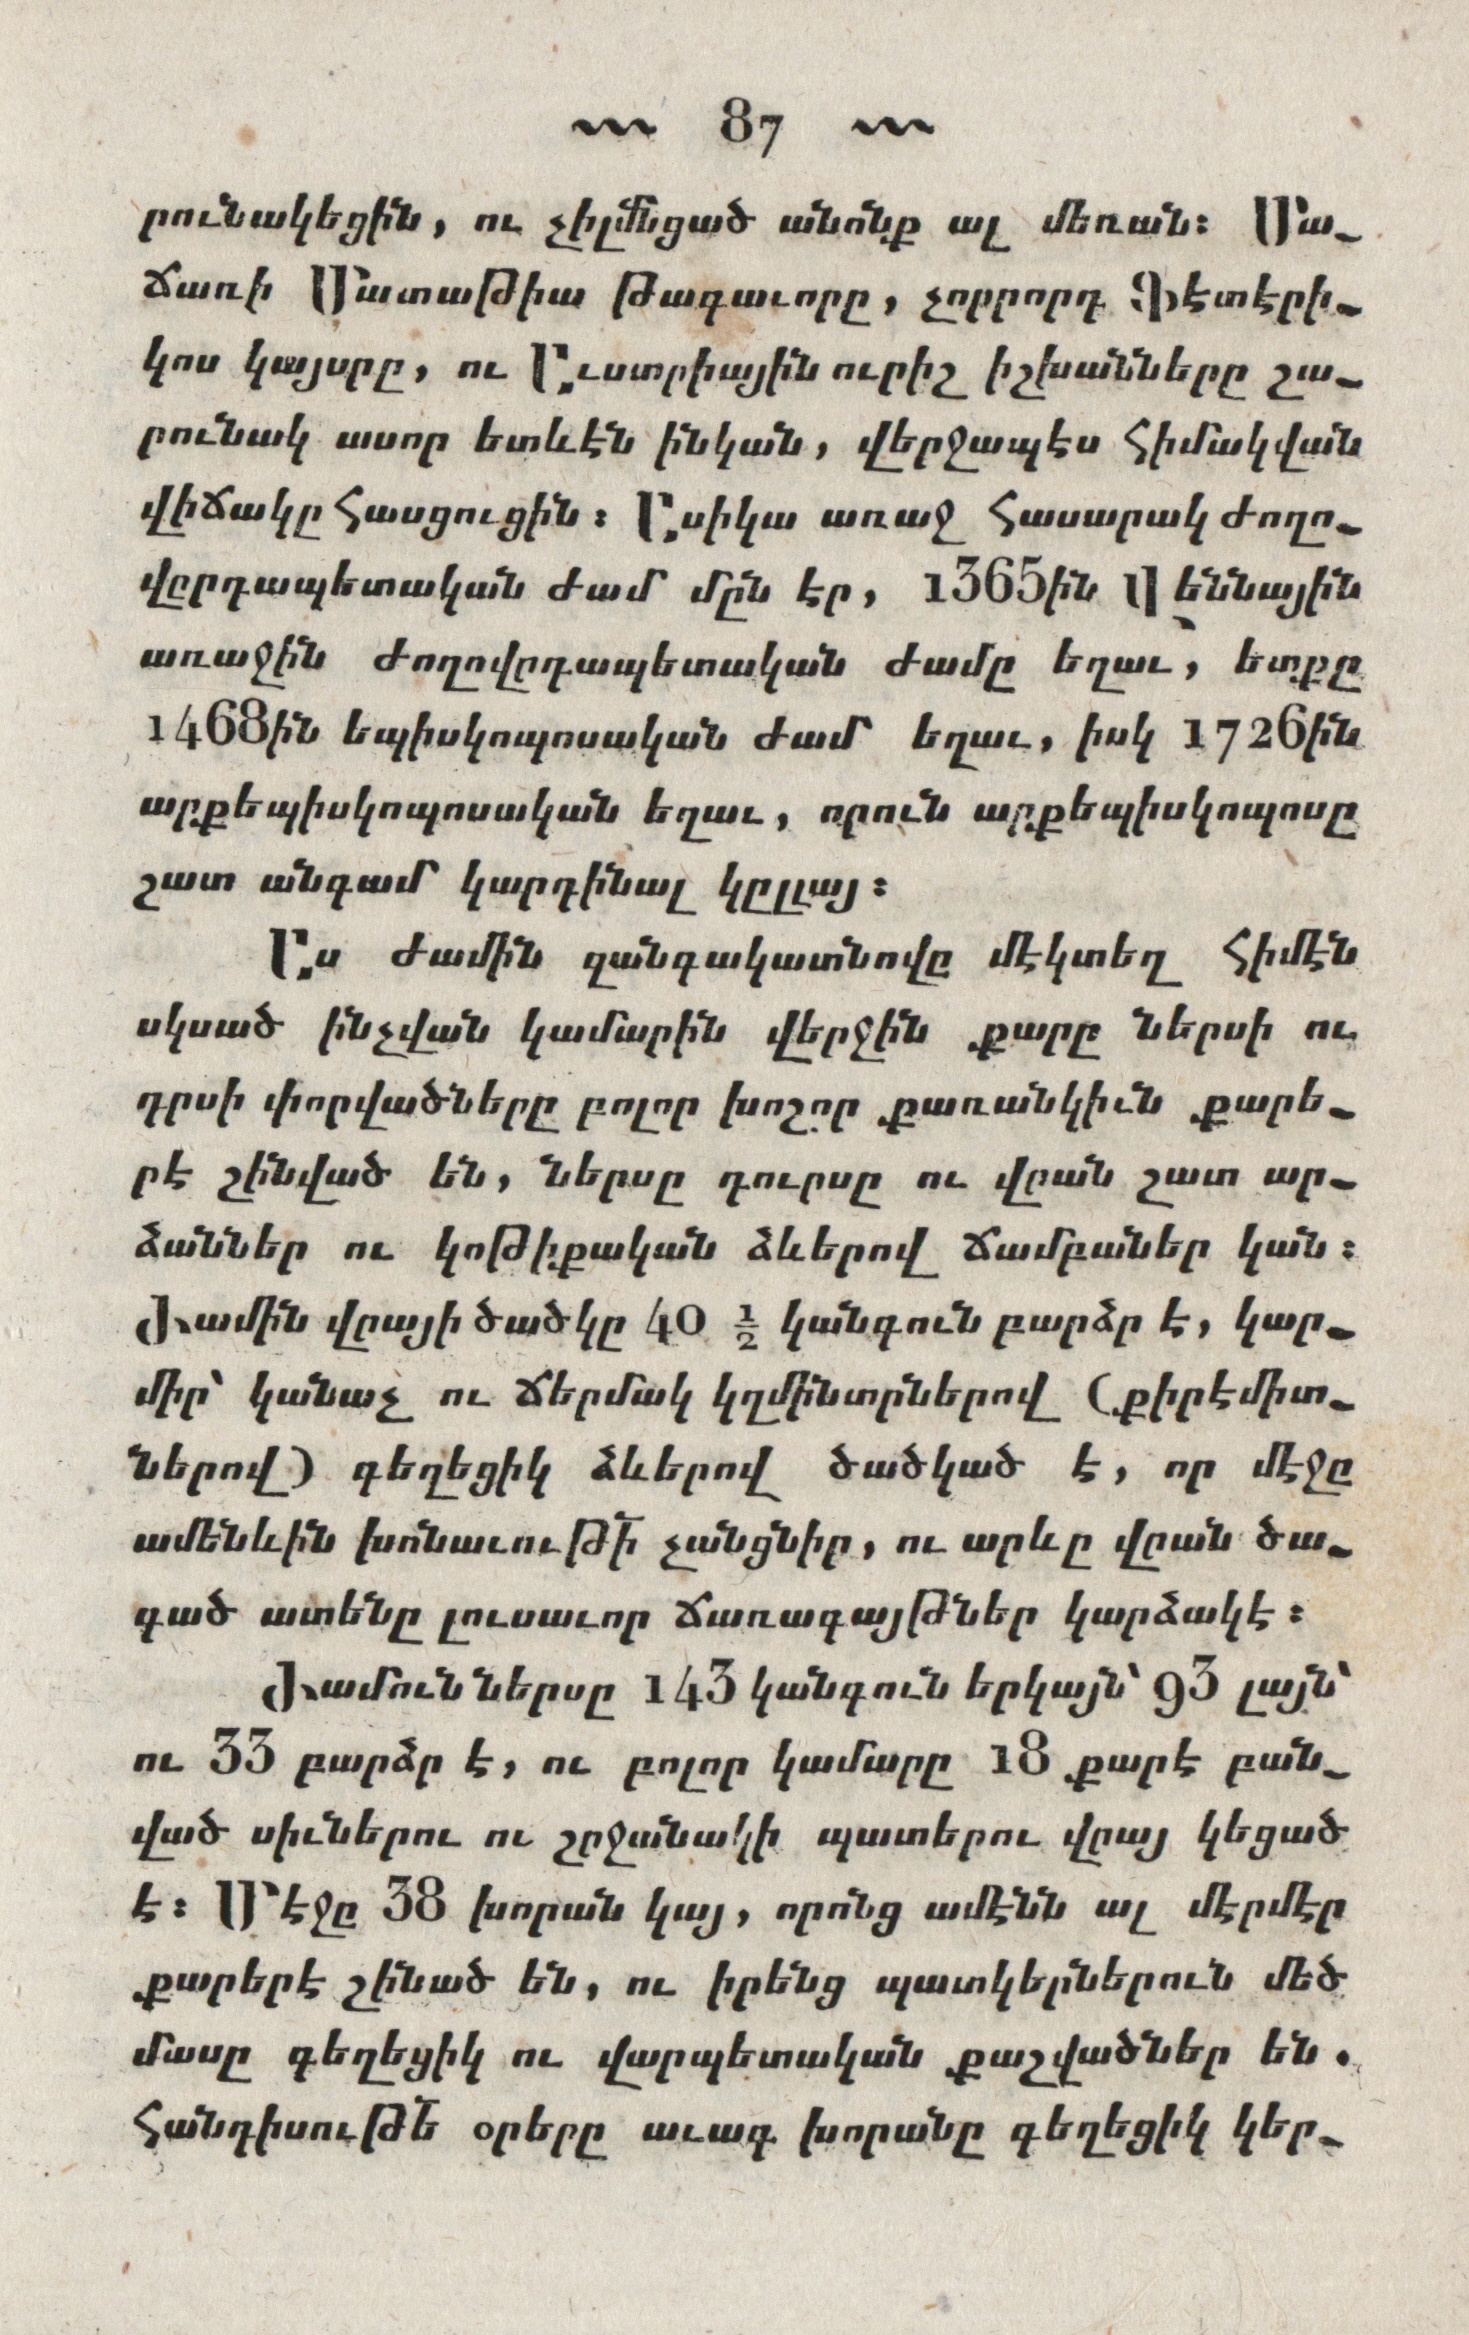 87
րունակեցին, ու չիլմնցած անոնք ալ մեռան։ Մա֊
ճառի Մատաթիա թագաւորը, չորրորդ Ֆէտէրի֊
կոս կայսրը, ու Աւստրիային ուրիշ իշխանները շա֊
րունակ ասոր ետևէն ինկան, վերջապէս հիմակվան
վիճակը հասցուցին։ Ասիկա առաջ հասարակ ժողո֊
վըրդապետական ժամ մըն էր, 1365ին Վեննային
առաջին ժողովըդապետական ժամը եղաւ, ետքը
1468ին եպիսկոպոսական ժամ եղաւ, իսկ 1726ին
արքեպիսկոպոսական եղաւ, որուն արքեպիսկոպոսը
շատ անգամ կարդինալ կըլլայ։
Աս ժամին զանգակատնովը մէկտեղ հիմէն
սկսած ինչվան կամարին վերջին քարը ներսի ու
դրսի փորվածները բոլոր խոշոր քառանկիւն քարե֊
րէ շինված են, ներսը դուրսը ու վըան շատ ար֊
ձաններ ու կոթիքական ձևերով ճամբաներ կան։
Ժամին վըայի ծածկը 40 ½ կանգուն բարձր է, կար֊
միր՝ կանաչ ու ճերմակ կղմինտրներով (քիրէմիտ֊
ներով) գեղեցիկ ձևերով ծածկած է, որ մէջը
ամենևին խոնաւութի՜ չանցնիր, ու արևը վըան ծա֊
գած ատենը լուսաւոր ճառագայթներ կարձակէ։
Ժամուն ներսը 143 կանգուն երկայն՝ 93 լայն՝
ու 33 բարձր է, ու բոլոր կամարը 18 քարէ բան֊
ված սիւներու ու շըջանակի պատերու վըայ կեցած
է։ Մէջը 38 խորան կայ, որոնց ամէնն ալ մէրմէր
քարերէ շինած են, ու իրենց պատկերներուն մեծ
մասը գեղեցիկ ու վարպետական քաշվածներ են.
Հանդիսութե՜ օրերը աւագ խորանը գեղեցիկ կեր֊